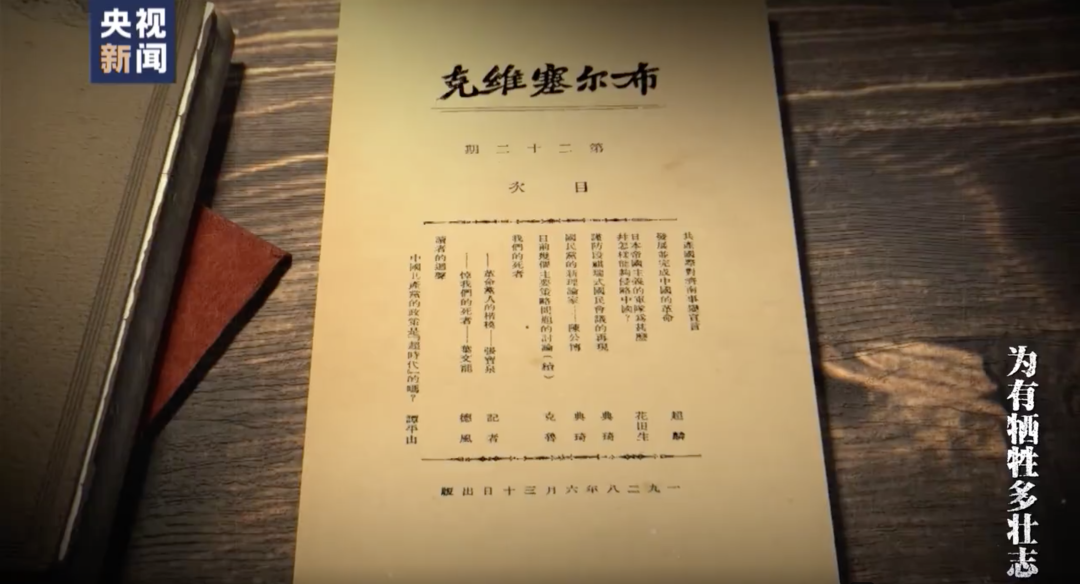 央视
新闻
布尔塞維克
第二十二期
目次
共產國際對濟南事變宣言
發展並完成中國的革命 超麟
日本帝國主義的軍隊為甚麼
并怎樣能夠侵略中國? 花田生
謹防段祺瑞式國民會議的再現 典琦
國民黨的新理論家——陳公博 典琦
目前幾個主要策略問題的討論(續) 克魯
我們的死者
——革命黨人的楷模——張寶泉 記者
——悼我們的死者—— 德風
讀者的迴聲
中國共產黨的政策是『超時代』的嗎? 譚平山
一九二八年六月三十日出版
为有牺牲多壮志